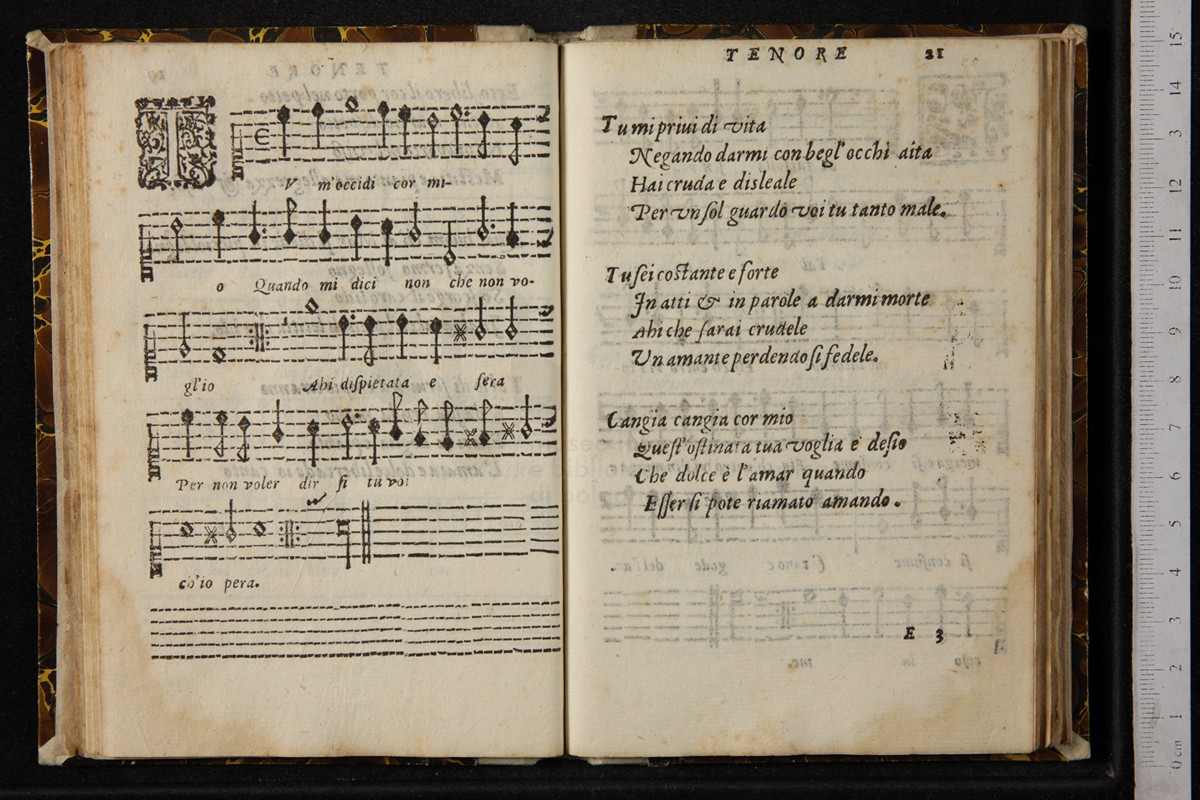 TV m'occidi cor mi-
o Quando mi dici non che non vo-
gl'io Ahi dispietata e fera
Per non voler dir si tu voi
ch'io pera.
TENORE 21
Tu mi priui di vita
Negando darmi con begl'occhi aita
Hai cruda e disleale
Per vn sol guardo voi tu tanto male.
Tu sei costante e forte
In atti & in parole a darmi morte
Ahi che farai crudele
Un amante perdendo si fedele.
Cangia cangia cor mio
Quest'ostinata tua voglia e desio
Che dolce è l'amar quando
Esser si pote riamato amando.
E 3